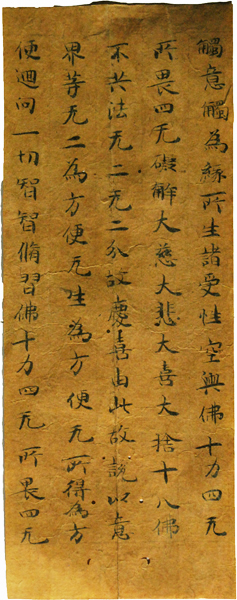 觸意觸為緣所生諸受性空與佛十力四无
所畏四无礙解大慈大悲大喜大捨十八佛
不共法无二无二分故慶喜由此故說以意
界等无二為方便无生為方便无所得為方
便迴向一切智智脩習佛十力四无所畏四无